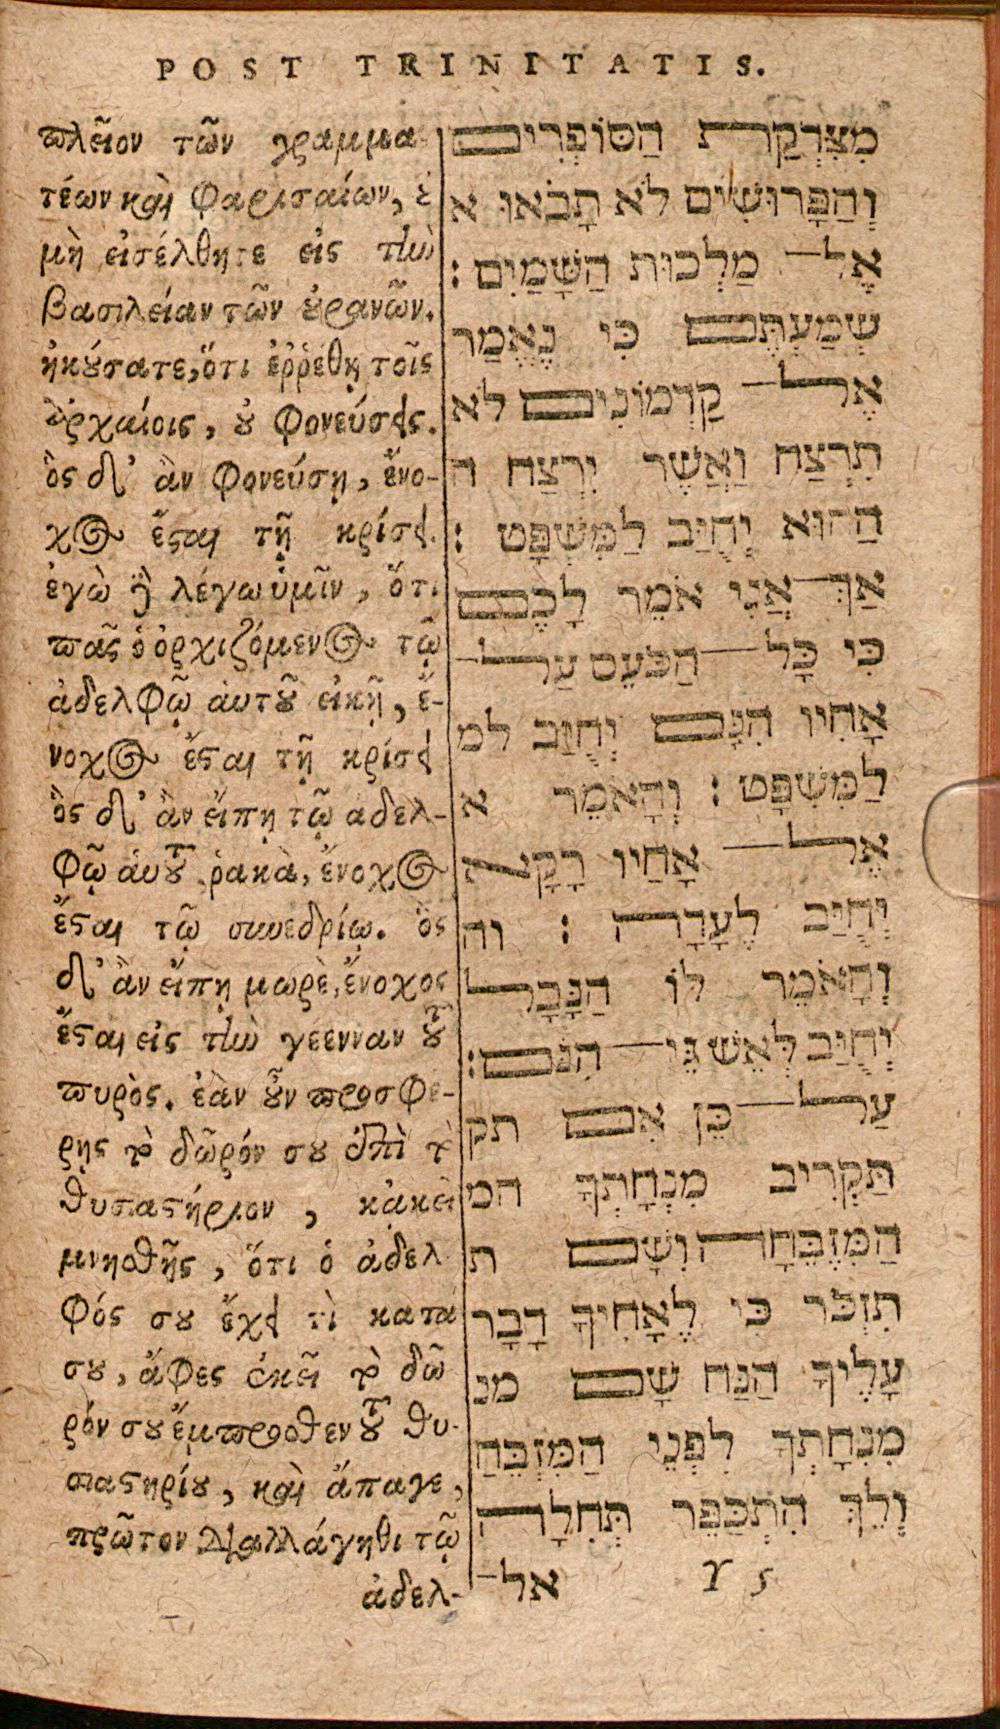 POST TRINITATIS.
πλεῖον τῶν γραμμα-
τέων καὶ Φαρισαίων, ȣ́
μὴ εἰσέλθητε εἰς τὴν
βασιλείαν τῶν ȣ̓ρανῶν.
ἠκȣ́σατε, ὅτι ἐῤῥέθη τοῖς
ἀρχαίοις, ȣ̓ φονεύσεις.
ὃς δ' ἂν φονεύσῃ, ἔνο-
χος ἔσται τῇ κρίσει.
ἐγὼ δὲ λέγω ὑμῖν, ὅτι
πᾶς ὁ ὀργιζόμενος τῷ
ἀδελφῷ ἁυτȣ͂ εἰκῇ, ἔ-
νοχος ἔσται τῇ κρίσει
ὃς δ' ἂν εἴπῃ τῷ αδελ-
φῷ ἁυτȣ͂ ῥακὰ, ἔνοχος
ἔσται τῷ συνεδρίῳ. ὃς
δ' ἂν εἴπῃ μωρὲ, ἔνοχος
ἔσται εἰς τὴν γεενναν τȣ͂
πυρὸς. ἐὰν ȣ̓͂ν προσφέ-
ρῃς τὸ δῶρόν σȣ ἐπὶ τὸ
θυσιαστήριον, κᾀκεῖ
μνησθῇς, ὅτι ὁ ἀδελ
φός σȣ ἔχει τὶ κατά
σȣ, ἄφες ἐκεῖ τὸ δῶ
ρόν σȣ ἔμπροσθεν τȣ͂ θυ-
σιαστηρίȣ, καὶ ἄπαγε,
πρῶτον διαλλάγηθι τῷ
ἀδελ-
מִצִּדְקַת הַסּוֹפְרִים
וְהַפָּרוּשִׁים לֹא תָבֹאוּ א
אֶל־ מַלְכוּת הַשָּׁמַיִם :
שְׁמַעְתֶּם כִּי נֶאֱמַר
אֶל־ קַדְמוֹנִים לֹא
תִרְצַח וַאֲשֶׁר יִרְצַח ה
הַהוּא יְחֻיַּב לַמִּשְׁפָּט :
אַךְ־אֲנִי אֹמֵר לָכֶם
כִּי כָּל־הַכֹּעֵס עַל־
אָחִיו הִנָּם יְחֻיַּב למ
לַמִּשְׁפָּט : וְהָאֹמֵר א
אֶל־ אָחִיו רָקָה
יְחֻיַּב לְעֵדָה : וה
וְהָאֹמֵר לוֹ הַנָּבָל
יְחֻיַּב לְאֵשׁ גֵּי־הִנֹּם :
עַל־כֵּן אִם תק
תַּקְרִיב מִנְחָתְךָ המ
הַמִּזְבֵּחָה וְשָׁם ת
תִזְכֹּר כִּי לְאָחִיךָ דָבָר
עָלֶיךָ הַנַּח שָׁם מנ
מִנְחָתְךָ לִפְנֵי הַמִּזְבֵּחַ
וְלֵךְ הִתְכַּפֵּר תְּחִלָּה
אל־
Y 5